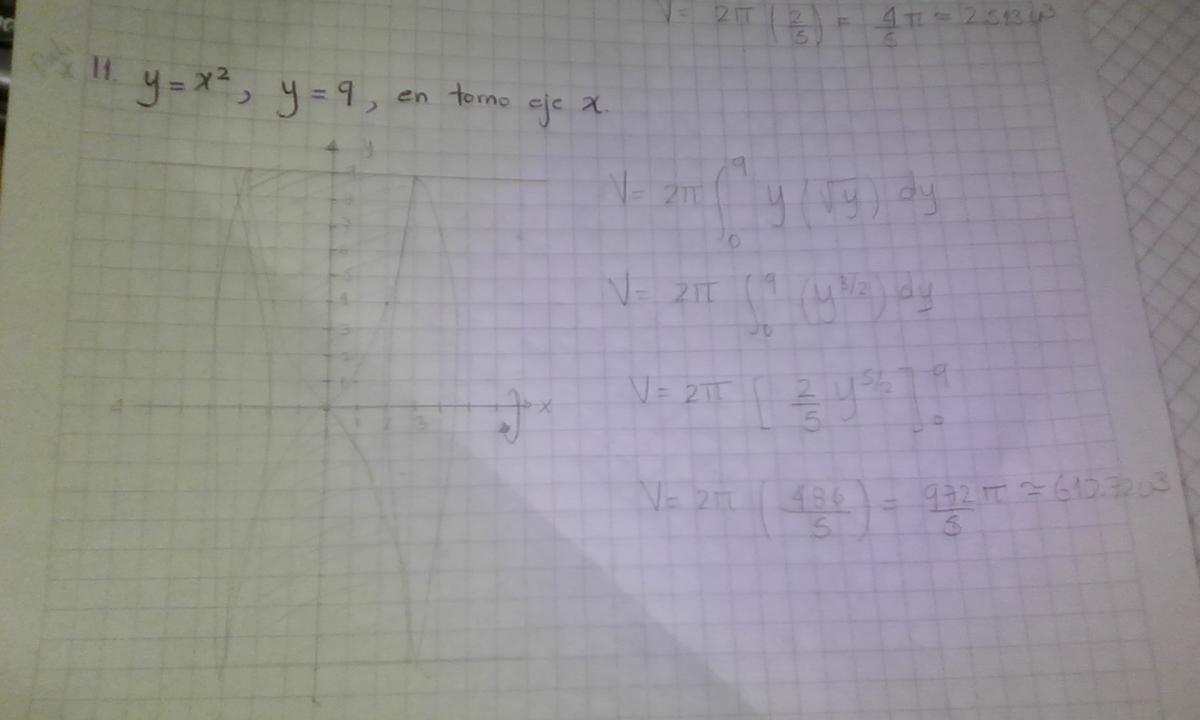 V = 2π (2/5) = 4/5 π = 2.513 u³
11. y = x², y = 9, en torno eje x.
y
V = 2π ∫₀⁹ y (√y) dy
V = 2π ∫₀⁹ (y^3/2) dy
V = 2π [2/5 y^5/2]₀⁹
V = 2π (486/5) = 972π/5 ≈ 610.72 u³
x
1 2 3